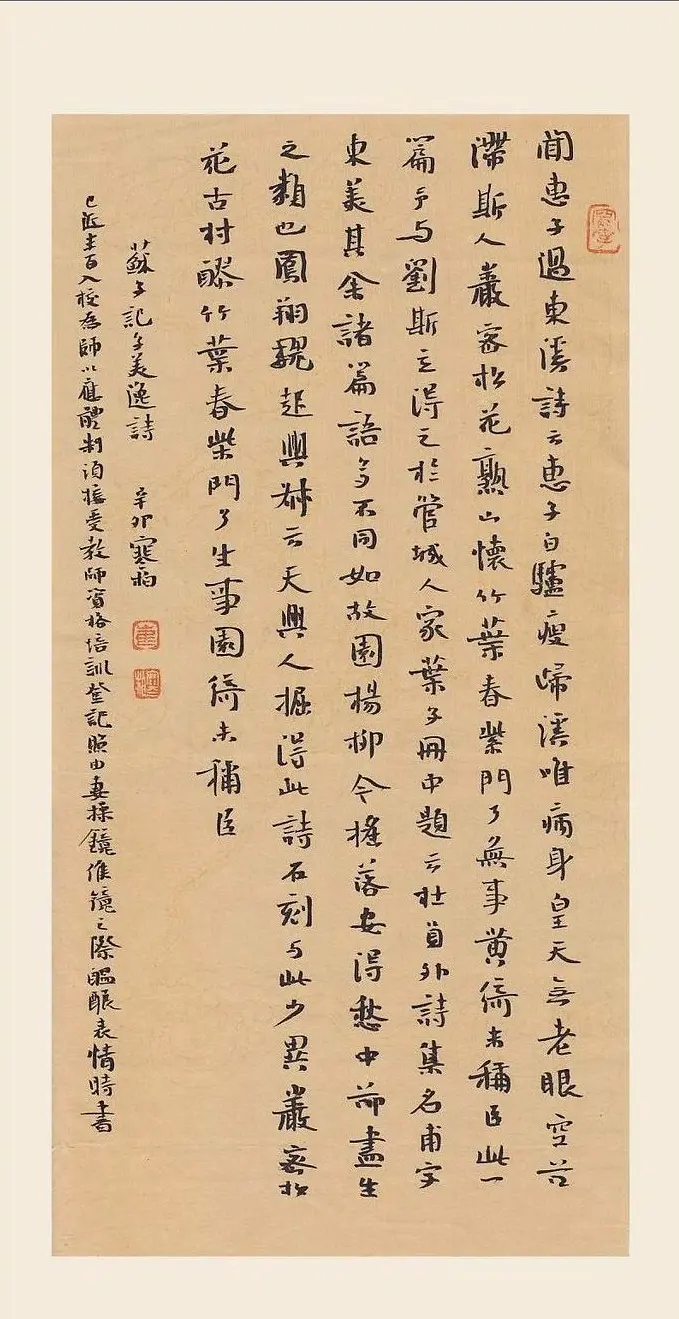 聞惠子過東溪詩云惠子白驢瘦歸溪唯病身皇天無老眼空谷
滯斯人巖密松花熟山懷竹葉春柴門了無事黄綺未稱臣此一
篇予与劉斯立得之於管城人家葉子冊中題云杜員外詩集名甫字
東美其余諸篇語多不同如故園楊柳今搖落安得愁中却盡生
之類也鳳翔魏起興叔云天興人掘得此詩石刻与此少異巖密松
花古村醪竹葉春柴門了生事園綺未稱臣
蘇子記子美逸詩 辛卯寒
入校為師以應體制須接受教師資格培訓登記照由妻操鏡准鏡之際醞釀表情時書